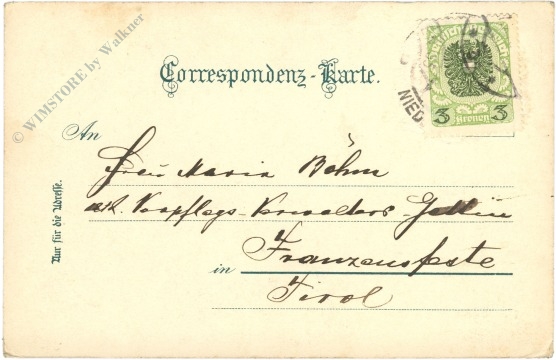 © WIMSTORE by Walkner
Correspondenz-Karte.
3 Kronen 3
NIED
An
Frau Maria Böhm
k.k. Verpflegs-Verwalters-Gattin
in Franzensfeste
Tirol
Nur für die Adresse.